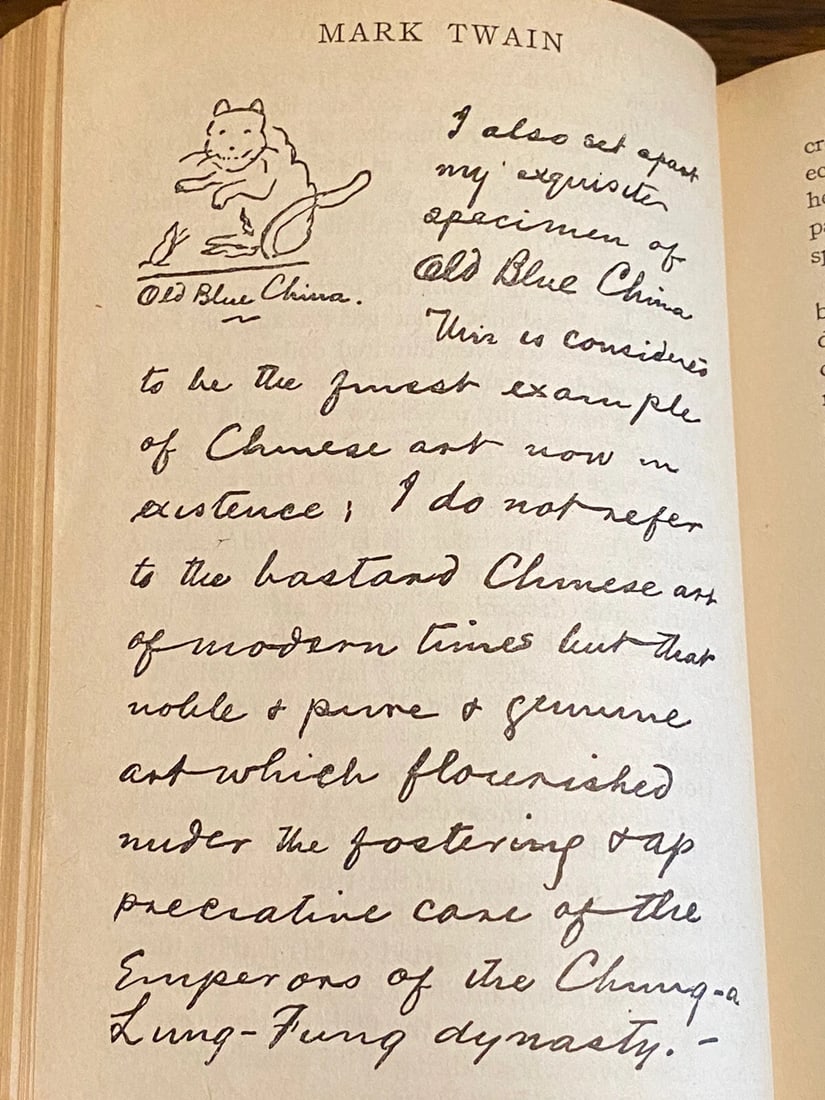 MARK TWAIN
I also set apart
my exquisite
specimen of
Old Blue China
Old Blue China.
This is considered
to be the finest example
of Chinese art now in
existence; I do not refer
to the bastard Chinese art
of modern times but that
noble & pure & genuine
art which flourished
under the fostering & ap
preciative care of the
Emperors of the Chung-a
Lung-Fung dynasty. -
cr
ec
he
pa
sp
b